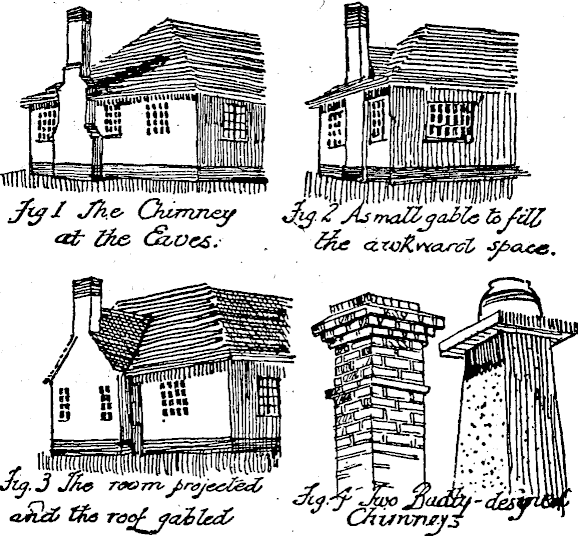 Fig 1 The Chimney
at the Eaves.
Fig 2 A small gable to fill
the awkward space.
Fig. 3 The room projected
and the roof gabled
Fig. 4 Two Badly-designed
Chimneys